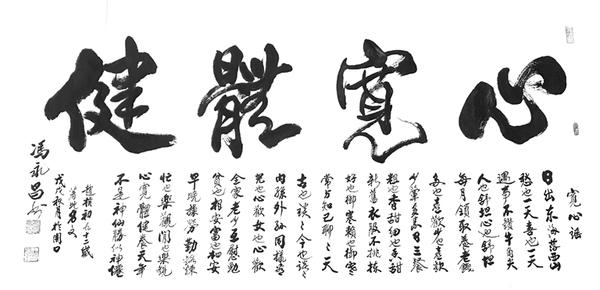 心寬體健
寬心谣
日出东海落西山
愁也一天喜也一天
遇事不鑽牛角尖
人也舒坦心也舒坦
每月領取養老錢
多也喜歡少也喜歡
少荤多素日三餐
粗也香甜细也香甜
新舊衣服不挑揀
好也御寒赖也御寒
常与知己聊々天
古也谈々今也谈々
内孫外孫同樣看
兒也心歡女也心歡
全家老少互慰勉
貧也相安富也相安
早晚操劳勤鍛煉
忙也樂觀閒也樂觀
心寬體健養天年
不是神仙勝似神仙
趙樸初九十二歲
著此名文
戊戌秋月於周口
馮永昌书